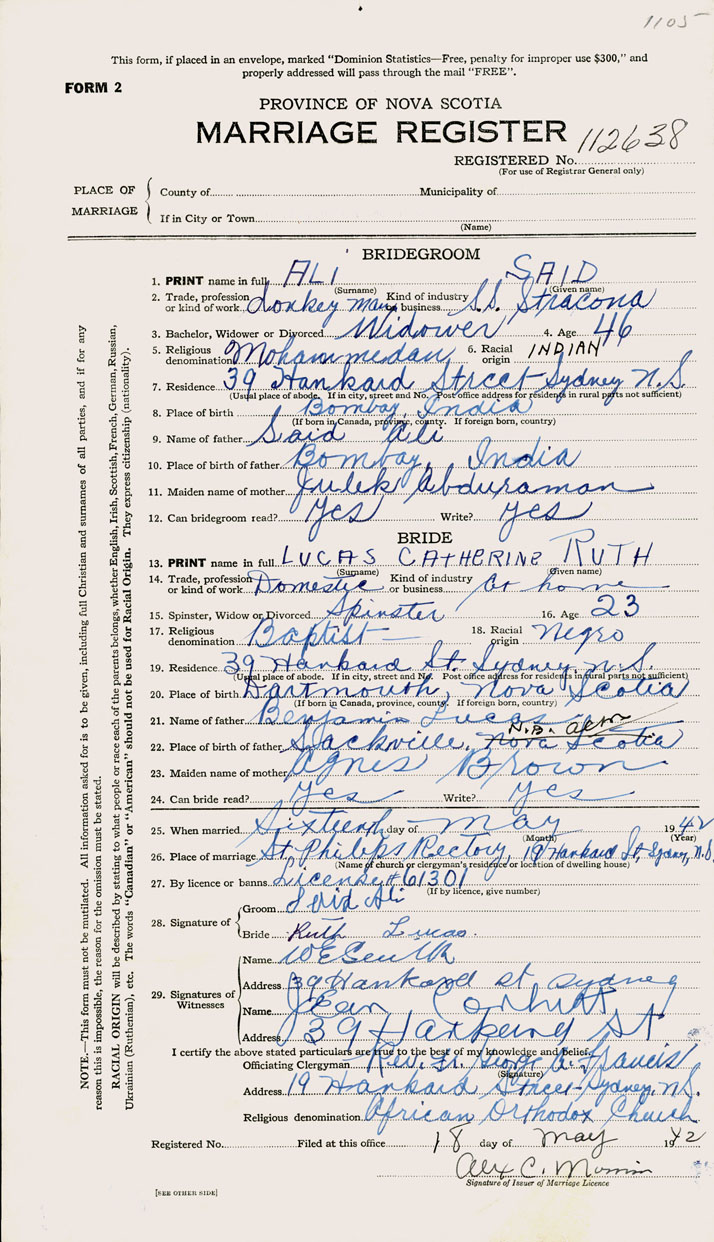 1105
This form, if placed in an envelope, marked "Dominion Statistics—Free, penalty for improper use $300," and
properly addressed will pass through the mail "FREE".
FORM 2
PROVINCE OF NOVA SCOTIA
MARRIAGE REGISTER 112638
REGISTERED No.
(For use of Registrar General only)
PLACE OF MARRIAGE
County of Municipality of
If in City or Town
(Name)
BRIDEGROOM
1. PRINT name in full ALI SAID
(Surname) (Given name)
2. Trade, profession or kind of work donkey man Kind of industry or business S.S. Stracona
3. Bachelor, Widower or Divorced Widower 4. Age 46
5. Religious denomination Mohammedan 6. Racial origin INDIAN
7. Residence 39 Hankard Street Sydney N.S.
(Usual place of abode. If in city, street and No. Post office address for residents in rural parts not sufficient)
8. Place of birth Bombay, India
(If born in Canada, province, county. If foreign born, country)
9. Name of father Said Ali
10. Place of birth of father Bombay, India
11. Maiden name of mother Julek Abduraman
12. Can bridegroom read? Yes Write? Yes
BRIDE
13. PRINT name in full LUCAS CATHERINE RUTH
(Surname) (Given name)
14. Trade, profession or kind of work Domestic Kind of industry or business At home
15. Spinster, Widow or Divorced Spinster 16. Age 23
17. Religious denomination Baptist 18. Racial origin Negro
19. Residence 39 Hankard St. Sydney N.S.
(Usual place of abode. If in city, street and No. Post office address for residents in rural parts not sufficient)
20. Place of birth Dartmouth, Nova Scotia
(If born in Canada, province, county. If foreign born, country)
21. Name of father Benjamin Lucas
N.B.
22. Place of birth of father Sackville, Nova Scotia
23. Maiden name of mother Agnes Brown
24. Can bride read? Yes Write? Yes
25. When married Sixteenth day of May 1942
(Month) (Year)
26. Place of marriage St. Philips Rectory, 19 Hankard St, Sydney, N.S.
(Name of church or clergyman's residence or location of dwelling house)
27. By licence or banns License #61301
(If by licence, give number)
28. Signature of
Groom Said Ali
Bride Ruth Lucas.
29. Signatures of Witnesses
Name
Address 39 Hankard st sydney
Name Jean Corbitt
Address 39 St
I certify the above stated particulars are true to the best of my knowledge and belief.
Officiating Clergyman Rev. Fr. George A. Francis
(Signature)
Address 19 Hankard Street Sydney, N.S.
Religious denomination African Orthodox Church
Registered No. Filed at this office 18 day of May 1942
Alex C.
Signature of Issuer of Marriage Licence
[SEE OTHER SIDE]
NOTE.—This form must not be mutilated. All information asked for is to be given, including full Christian and surnames of all parties, and if for any
reason this is impossible, the reason for the omission must be stated.
RACIAL ORIGIN will be described by stating to what people or race each of the parents belongs, whether English, Irish, Scottish, French, German, Russian,
Ukrainian (Ruthenian), etc. The words "Canadian" or "American" should not be used for Racial Origin. They express citizenship (nationality).